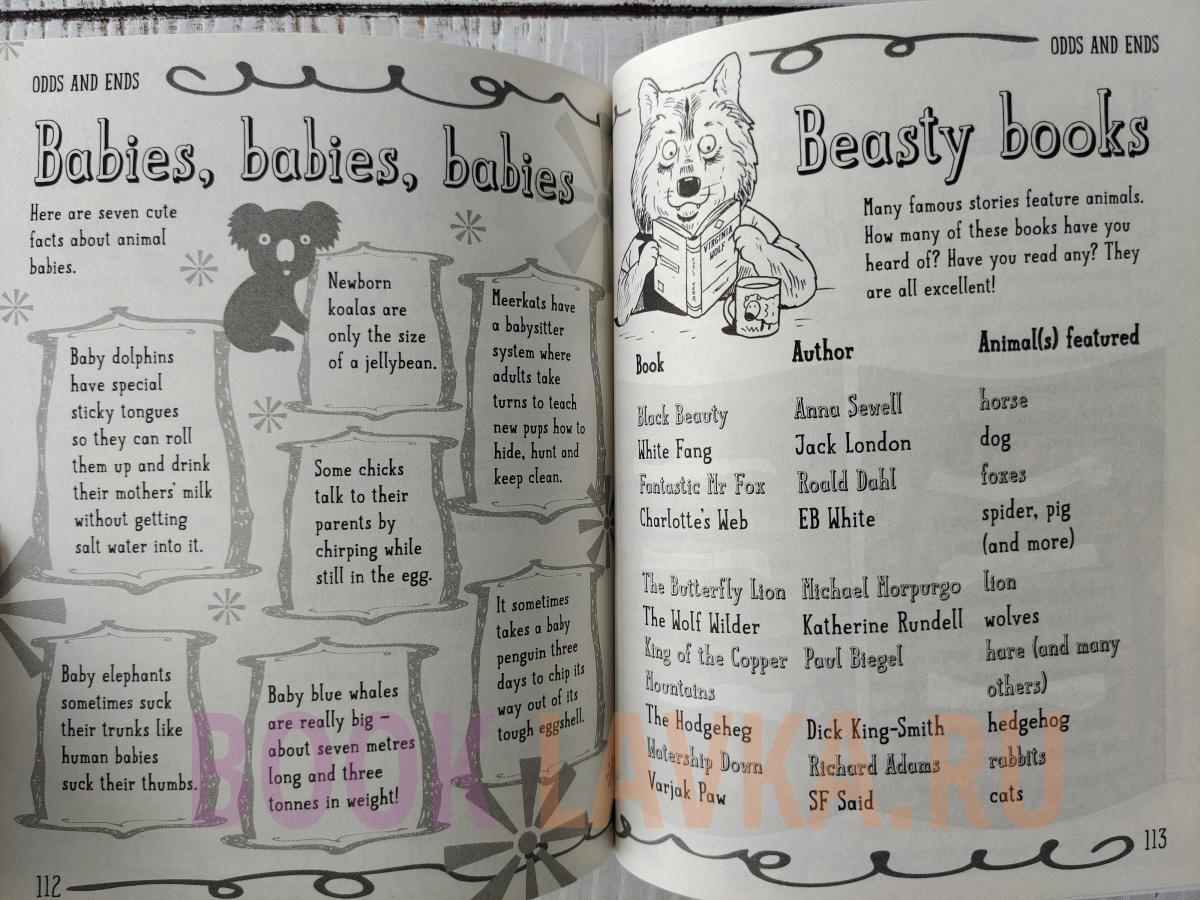 ODDS AND ENDS
Babies, babies, babies
Here are seven cute
facts about animal
babies.
Newborn
koalas are
only the size
of a jellybean.
Meerkats have
a babysitter
system where
adults take
turns to teach
new pups how to
hide, hunt and
keep clean.
Baby dolphins
have special
sticky tongues
so they can roll
them up and drink
their mothers' milk
without getting
salt water into it.
Some chicks
talk to their
parents by
chirping while
still in the egg.
It sometimes
takes a baby
penguin three
days to chip its
way out of its
tough eggshell.
Baby elephants
sometimes suck
their trunks like
human babies
suck their thumbs.
Baby blue whales
are really big –
about seven metres
long and three
tonnes in weight!
112
ODDS AND ENDS
Beasty books
VIRGINIA
WOLF
Many famous stories feature animals.
How many of these books have you
heard of? Have you read any? They
are all excellent!
Book Author Animal(s) featured
Black Beauty Anna Sewell horse
White Fang Jack London dog
Fantastic Mr Fox Roald Dahl foxes
Charlotte's Web EB White spider, pig
(and more)
The Butterfly Lion Michael Morpurgo lion
The Wolf Wilder Katherine Rundell wolves
King of the Copper Paul Biegel hare (and many
Mountains others)
The Hodgeheg Dick King-Smith hedgehog
Watership Down Richard Adams rabbits
Varjak Paw SF Said cats
113
BOOK LAVKA.RU